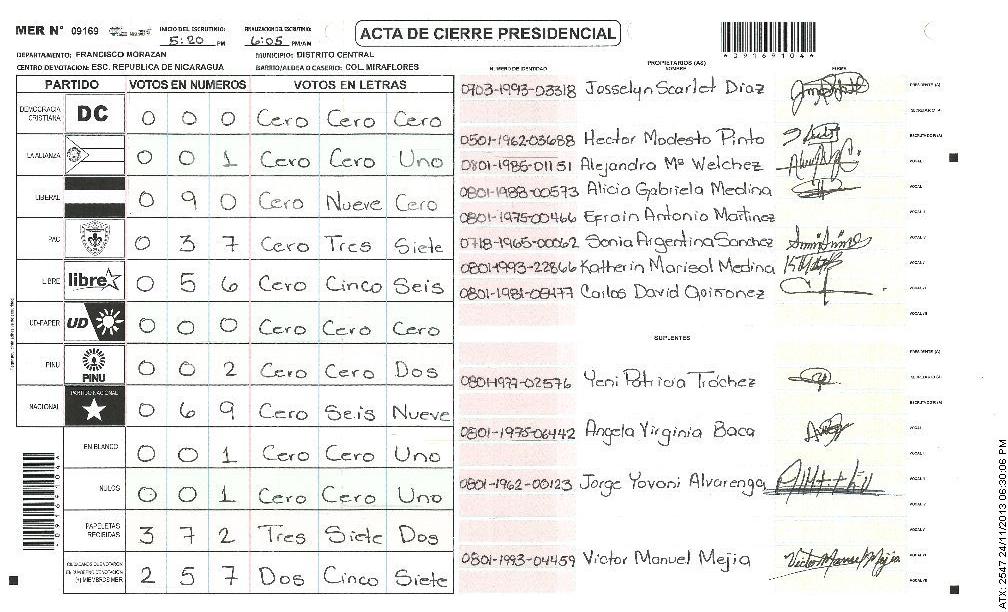 MER N° 09169 INICIO DEL ESCRUTINIO: 5:20 PM FINALIZACION DEL ESCRUTINIO: 6:05 PM/AM ACTA DE CIERRE PRESIDENCIAL *09169104*
DEPARTAMENTO: FRANCISCO MORAZAN MUNICIPIO: DISTRITO CENTRAL
CENTRO DE VOTACION: ESC. REPUBLICA DE NICARAGUA BARRIO/ALDEA O CASERIO: COL. MIRAFLORES
PARTIDO VOTOS EN NUMEROS VOTOS EN LETRAS
DEMOCRACIA CRISTIANA DC 0 0 0 Cero Cero Cero
LA ALIANZA 0 0 1 Cero Cero Uno
LIBERAL 0 9 0 Cero Nueve Cero
PAC 0 3 7 Cero Tres Siete
LIBRE libre 0 5 6 Cero Cinco Seis
UD-FAPER UD 0 0 0 Cero Cero Cero
PINU PINU 0 0 2 Cero Cero Dos
NACIONAL PARTIDO NACIONAL 0 6 9 Cero Seis Nueve
EN BLANCO 0 0 1 Cero Cero Uno
NULOS 0 0 1 Cero Cero Uno
PAPELETAS RECIBIDAS 3 7 2 Tres Siete Dos
2 5 7 Dos Cinco Siete
NUMERO DE IDENTIDAD PROPIETARIOS (AS) NOMBRE FIRMA
0703-1993-03318 Josselyn Scarlet Diaz PRESIDENTE (A)
SECRETARIO (A)
0501-1962-03688 Hector Modesto Pinto ESCRUTADOR (A)
0801-1985-01151 Alejandra Mª Welchez VOCAL
0801-1988-00573 Alicia Gabriela Medina VOCAL
0801-1975-00466 Efrain Antonio Martinez
0718-1965-00062 Sonia Argentina Sanchez
0801-1993-22866 Katherin Marisol Medina
0801-1981-05477 Carlos David Quiñonez
SUPLENTES
PRESIDENTE (A)
0801-1977-02576 Yeni Patricia Tróchez SECRETARIO (A)
ESCRUTADOR (A)
0801-1975-06442 Angela Virginia Baca
0801-1962-00123 Jorge Yovani Alvarenga
0801-1993-04459 Victor Manuel Mejia Victor Manuel Mejia
*09169104*
ATX: 2547 24/11/2013 06:30:06 PM